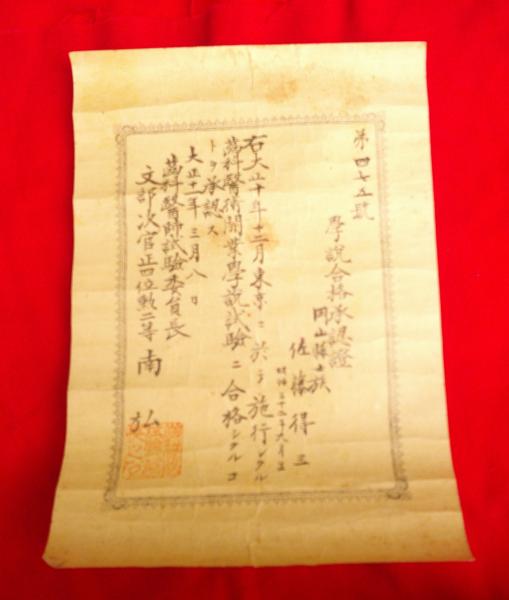 第四七五號
學說合格承認證
岡山縣士族
佐藤得三
明治三十二年九月生
右大正十年十二月東京ニ於テ施行シタル
齒科醫術開業學說試驗ニ合格シタルコ
トヲ承認ス
大正十一年三月八日
齒科醫師試驗委員長
文部次官正四位勲二等南弘